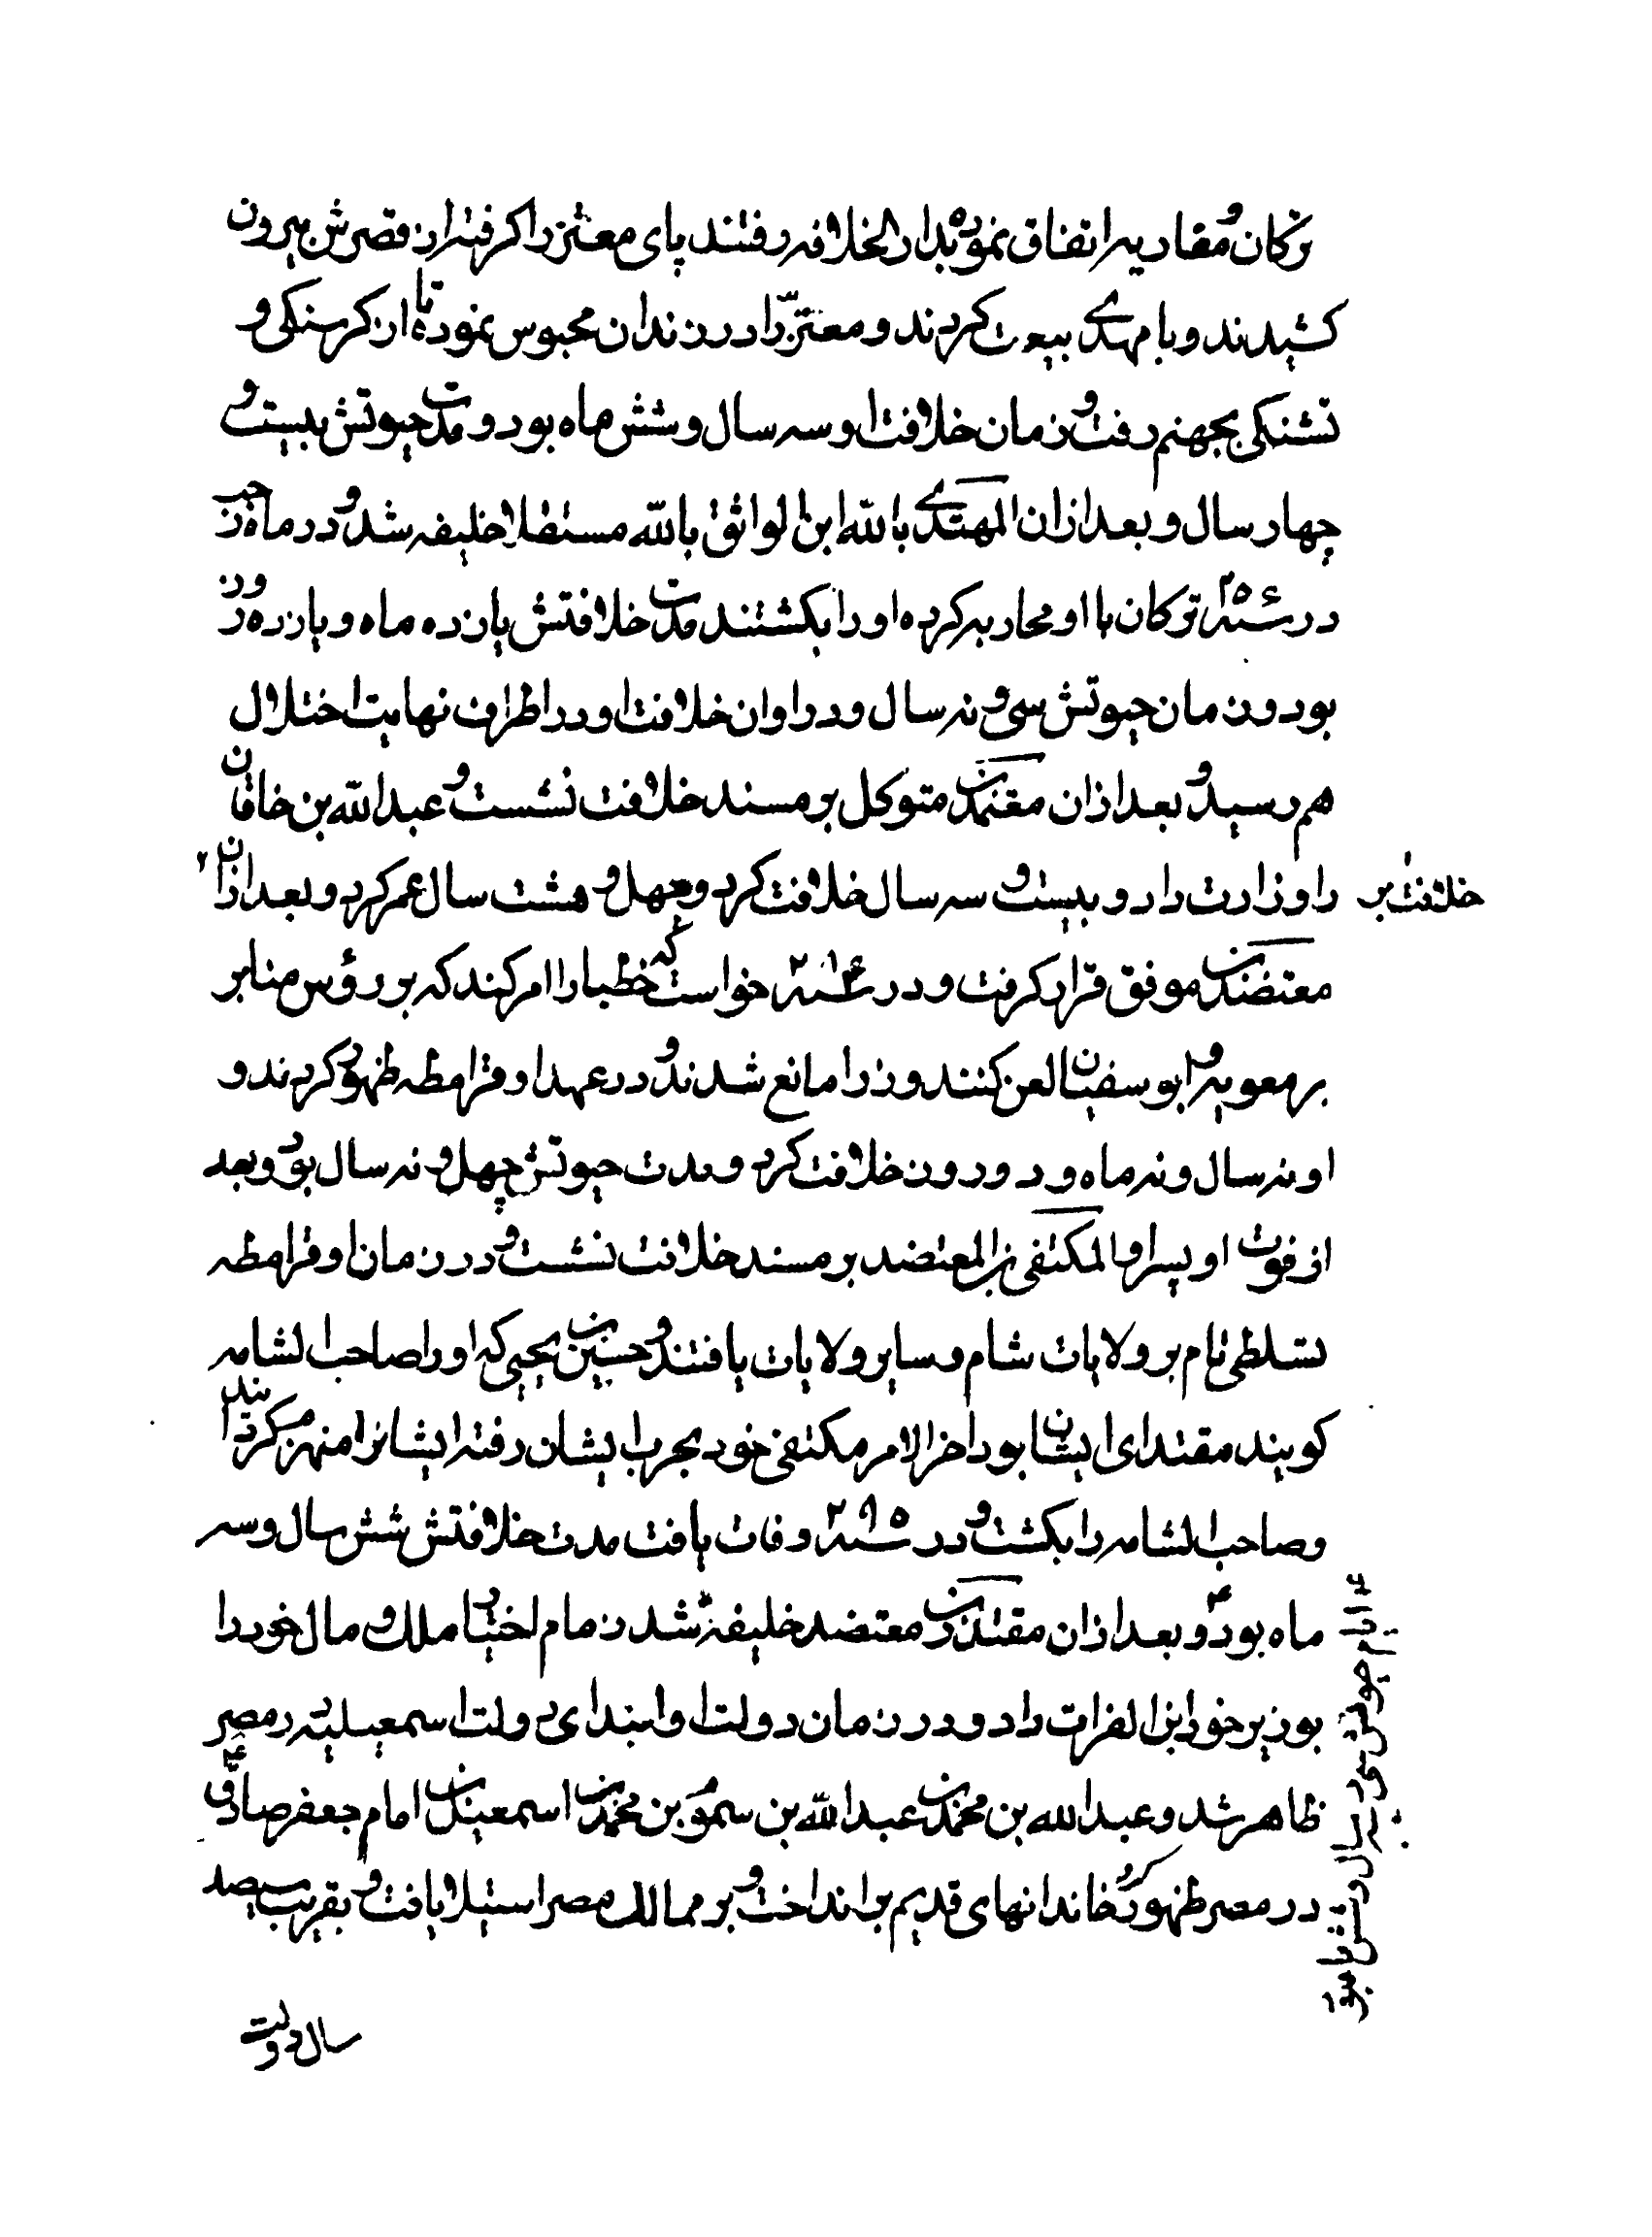 ترکان و مغاربه اتفاق نموده بدار الخلافه رفتند پای معتز را کرفته از قصرش بیرون
کشیدند و با مهتدی بیعت کردند و معتز را در زندان محبوس نموده تا از کرسنکی و
تشنکی بجهنم رفت و زمان خلافت او سه سال و شش ماه بود و مدت حیوتش بیست و
چهار سال و بعد ازان المهتدی بالله ابن الواثق بالله مستقلا خلیفه شد و در ماه رجب
در سنه ۲۵۶ ترکان با او محاربه کرده او را بکشتند مدت خلافتش یازده ماه و یازده روز
بود و زمان حیوتش سی و نه سال و در اوان خلافت او در اطراف نهایت اختلال
هم رسید و بعد ازان معتمد بن متوکل بر مسند خلافت نشست و عبدالله بن خاقان
را وزارت داد و بیست و سه سال خلافت کرد و چهل و هشت سال عمر کرد و بعد ازان
خلافت بر
معتضد بن موفق قرار کرفت و در سنه ۲۸۴ خواست که خطبا را امر کند که بر رؤس منابر
بر معویه و ابو سفیان لعن کنند وزرا مانع شدند و در عهد او قرامطه ظهور کردند و
او نه سال و نه ماه و دو روز خلافت کرد و مدت حیوتش چهل و نه سال بود و بعد
از فوت او پسر او المکتفی بن المعتضد بر مسند خلافت نشست و در زمان او قرامطه
تسلطی تام بر ولایات شام و سایر ولایات یافتند و حسین بن یحیی که او را صاحب الشامه
کویند مقتدای ایشان بود اخر الامر مکتفی خود بحرب ایشان رفته ایشانرا منهزم کردانید
و صاحب الشامه را بکشت و در سنه ۲۹۵ وفات یافت مدت خلافتش شش سال و سه
ماه بود و بعد ازان مقتدر بن معتضد خلیفه شد زمام اختیار ملک و مال خود را
بوزیر خود ابن الفرات داد و در زمان دولت او ابتدای دولت اسمعیلیه در مصر
ظاهر شد و عبدالله بن محمد بن عبدالله بن بن محمد بن اسمعیل بن امام جعفر صادق ع
در مصر ظهور کرد و خاندانهای قدیم بر انداخت و بر ممالک مصر استیلا یافت و بقریب سیصد
ایام حیوتش سی سال و شش
سال دولت